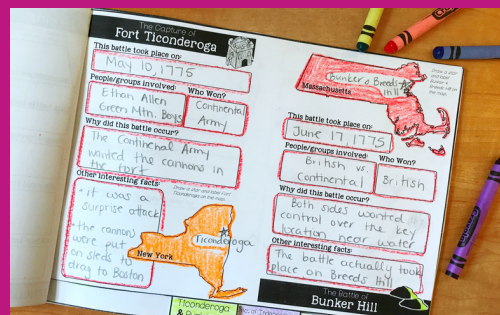 The Capture of
Fort Ticonderoga
This battle took place on:
May 10, 1775
People/groups involved:
Ethan Allen
Green Mtn. Boys
Who Won?
Continental
Army
Why did this battle occur?
The Continental Army
wanted the cannons in
the fort
Other interesting facts:
• it was a
surprise attack
• the cannons
were put
on sleds to
drag to Boston
Draw a star and label Fort
Ticonderoga on the map.
Ticonderoga
New York
Bunker & Breeds
Hill
Massachusetts
Draw a star
and label
Bunker &
Breeds Hill on
the map.
This battle took place on:
June 17, 1775
People/groups involved:
British vs.
Continental
Who Won?
British
Why did this battle occur?
Both sides wanted
control over the key
location near water
Other interesting facts:
The battle actually took
place on Breeds Hill
The Battle of
Bunker Hill
Ticonderoga